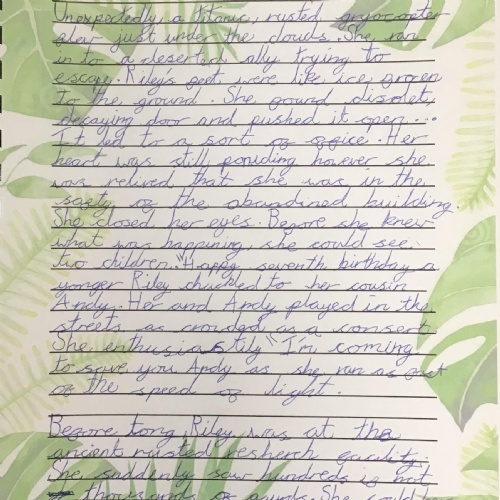 Unexpectedly, a titanic, rusted, gryocopter
flew just under the clouds. She ran
in to a deserted ally trying to
escape. Riley's feet were like ice frozen
to the ground. She found disolet,
decaying door and pushed it open...
It led to a sort of office. Her
heart was still poniding horever she
was relived that she was in the
safty of the abandined building.
She closed her eyes. Before she knew
what was happining, she could see,
two children. "Happy seventh birthday a
yonger Riley chuckled to her cousin
Andy. Her and Andy played in the
streets as crowded as a consert
She enthusiastily "I'm coming
to save you Andy as she ran as fast
of the speed of light.
Before long, Riley was at the
ancient rusted reserch facility.
She suddenly saw hundreds is not
thousands of She could